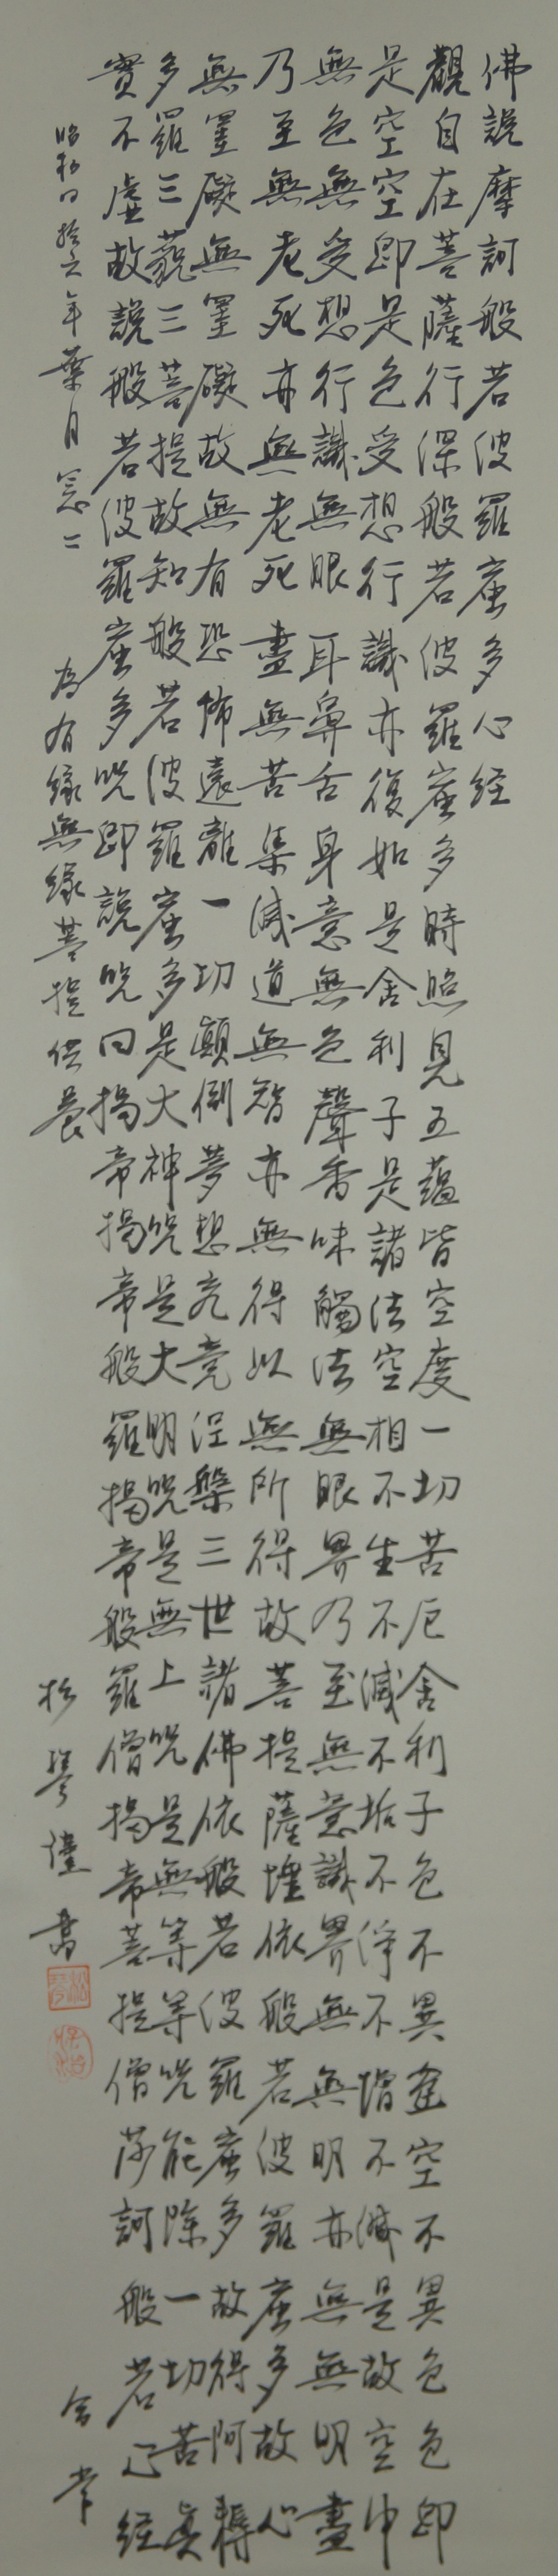 佛説摩訶般若波羅蜜多心経
觀自在菩薩行深般若波羅蜜多時照見五蘊皆空度一切苦厄舍利子色不異空空不異色色即
是空空即是色受想行識亦復如是舍利子是諸法空相不生不滅不垢不浄不増不減是故空中
無色無受想行識無眼耳鼻舌身意無色聲香味觸法無眼界乃至無意識界無無明亦無無明盡
乃至無老死亦無老死盡無苦集滅道無智亦無得以無所得故菩提薩埵依般若波羅蜜多故心
無罣礙無罣礙故無有恐怖遠離一切顛倒夢想究竟涅槃三世諸佛依般若波羅蜜多故得阿耨
多羅三藐三菩提故知般若波羅蜜多是大神呪是大明呪是無上呪是無等等呪能除一切苦真
實不虚故説般若波羅蜜多呪即説呪曰揭帝揭帝般羅揭帝般羅僧揭帝菩提僧莎訶般若心経
昭和四拾六年葉月 為有縁無縁菩提供養 松琴謹書 合掌